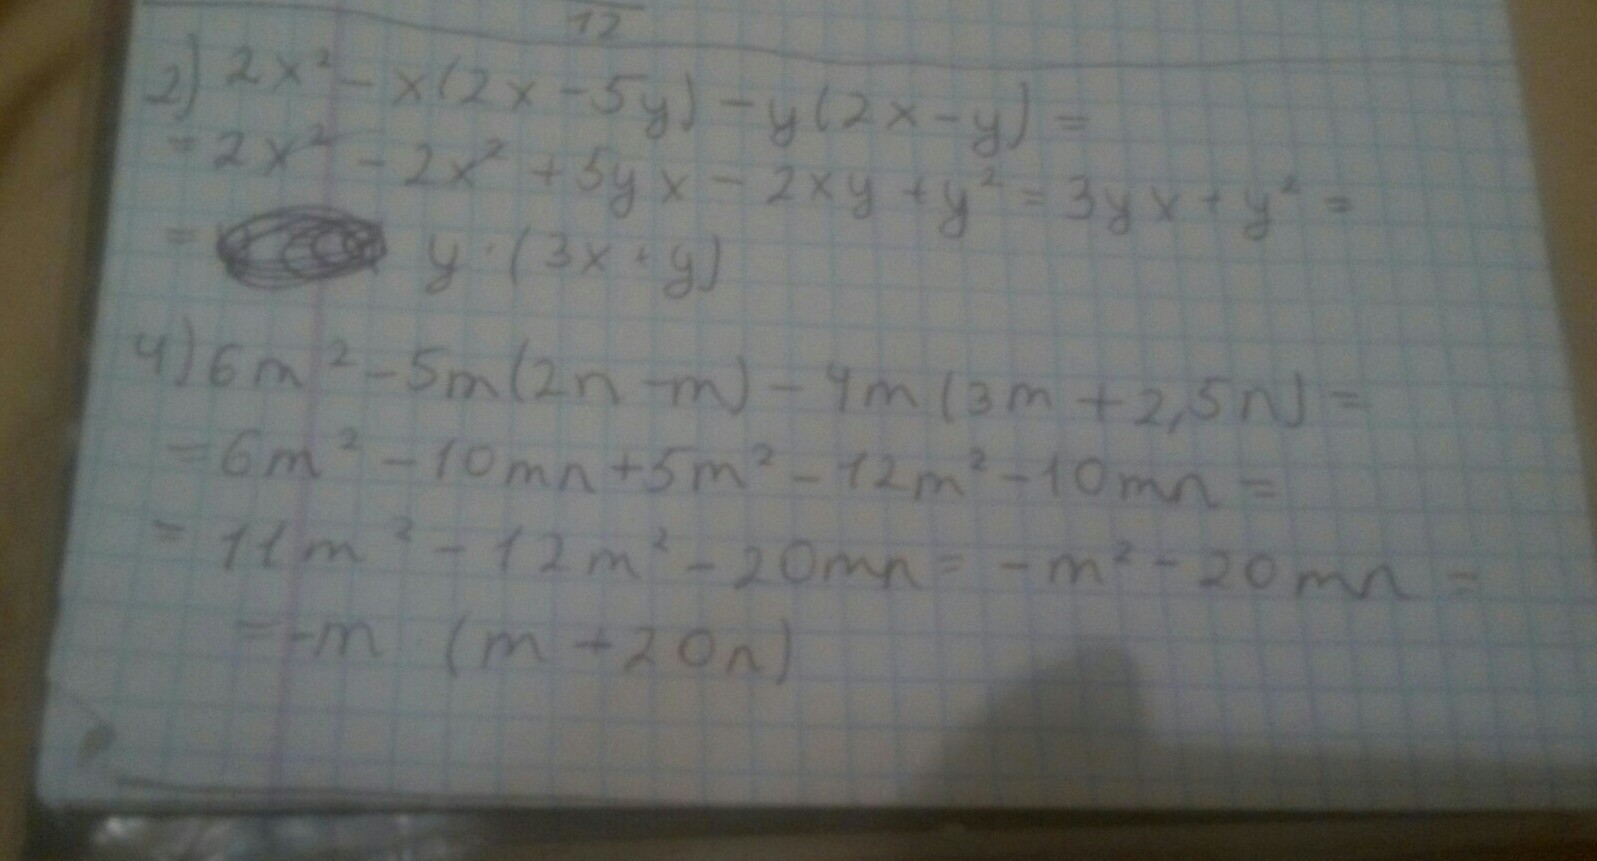 12
2) 2x² - x(2x - 5y) - y(2x - y) =
= 2x² - 2x² + 5yx - 2xy + y² = 3yx + y² =
= y · (3x + y)
4) 6m² - 5m(2n - m) - 4m(3m + 2,5n) =
= 6m² - 10mn + 5m² - 12m² - 10mn =
= 11m² - 12m² - 20mn = - m² - 20mn =
= -m (m + 20n)